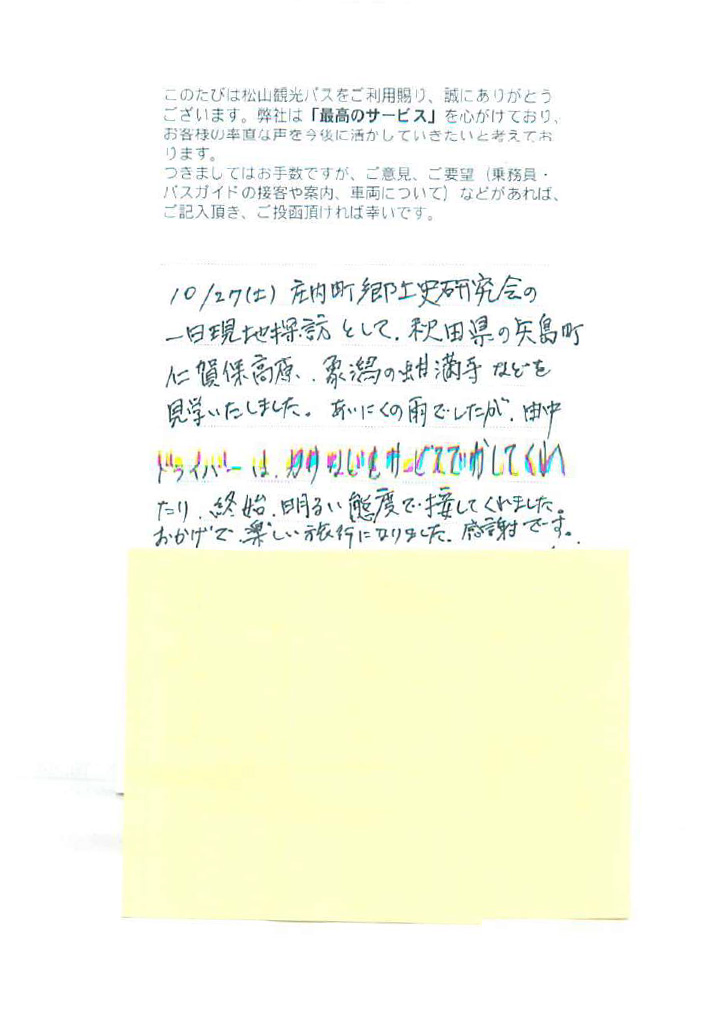 このたびは松山観光バスをご利用賜り、誠にありがとう
ございます。弊社は「最高のサービス」を心がけており、
お客様の率直な声を今後に活かしていきたいと考えてお
ります。
つきましてはお手数ですが、ご意見、ご要望（乗務員・
バスガイドの接客や案内、車両について）などがあれば、
ご記入頂き、ご投函頂ければ幸いです。
10/27(土) 庄内町郷土史研究会の
一日現地探訪として、秋田県の矢島町
仁賀保高原、象潟の蚶満寺などを
見学いたしました。あいにくの雨でしたが、田中
ドライバーは、サービス してくれ
たり、終始、明るい態度で接してくれました。
おかげで楽しい旅行になりました。感謝です。